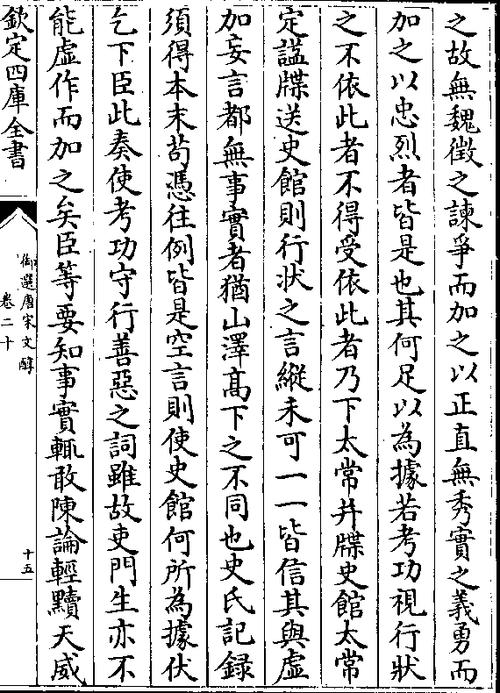 之故無魏徴之諫爭而加之以正直無秀實之義勇而
加之以忠烈者皆是也其何足以為據若考功視行狀
之不依此者不得受依此者乃下太常并牒史館太常
定諡牒送史館則行狀之言縱未可一一皆信其與虛
加妄言都無事實者猶山澤髙下之不同也史氏記錄
須得本末苟憑往例皆是空言則使史館何所為據伏
乞下臣此奏使考功守行善惡之詞雖故吏門生亦不
能虛作而加之矣臣等要知事實輒敢陳論輕黷天威
欽定四庫全書
御選唐宋文醇
卷二十
十五